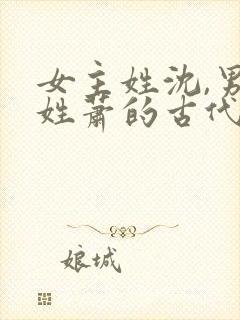 女主姓沈,男
姓萧的古代
娘城